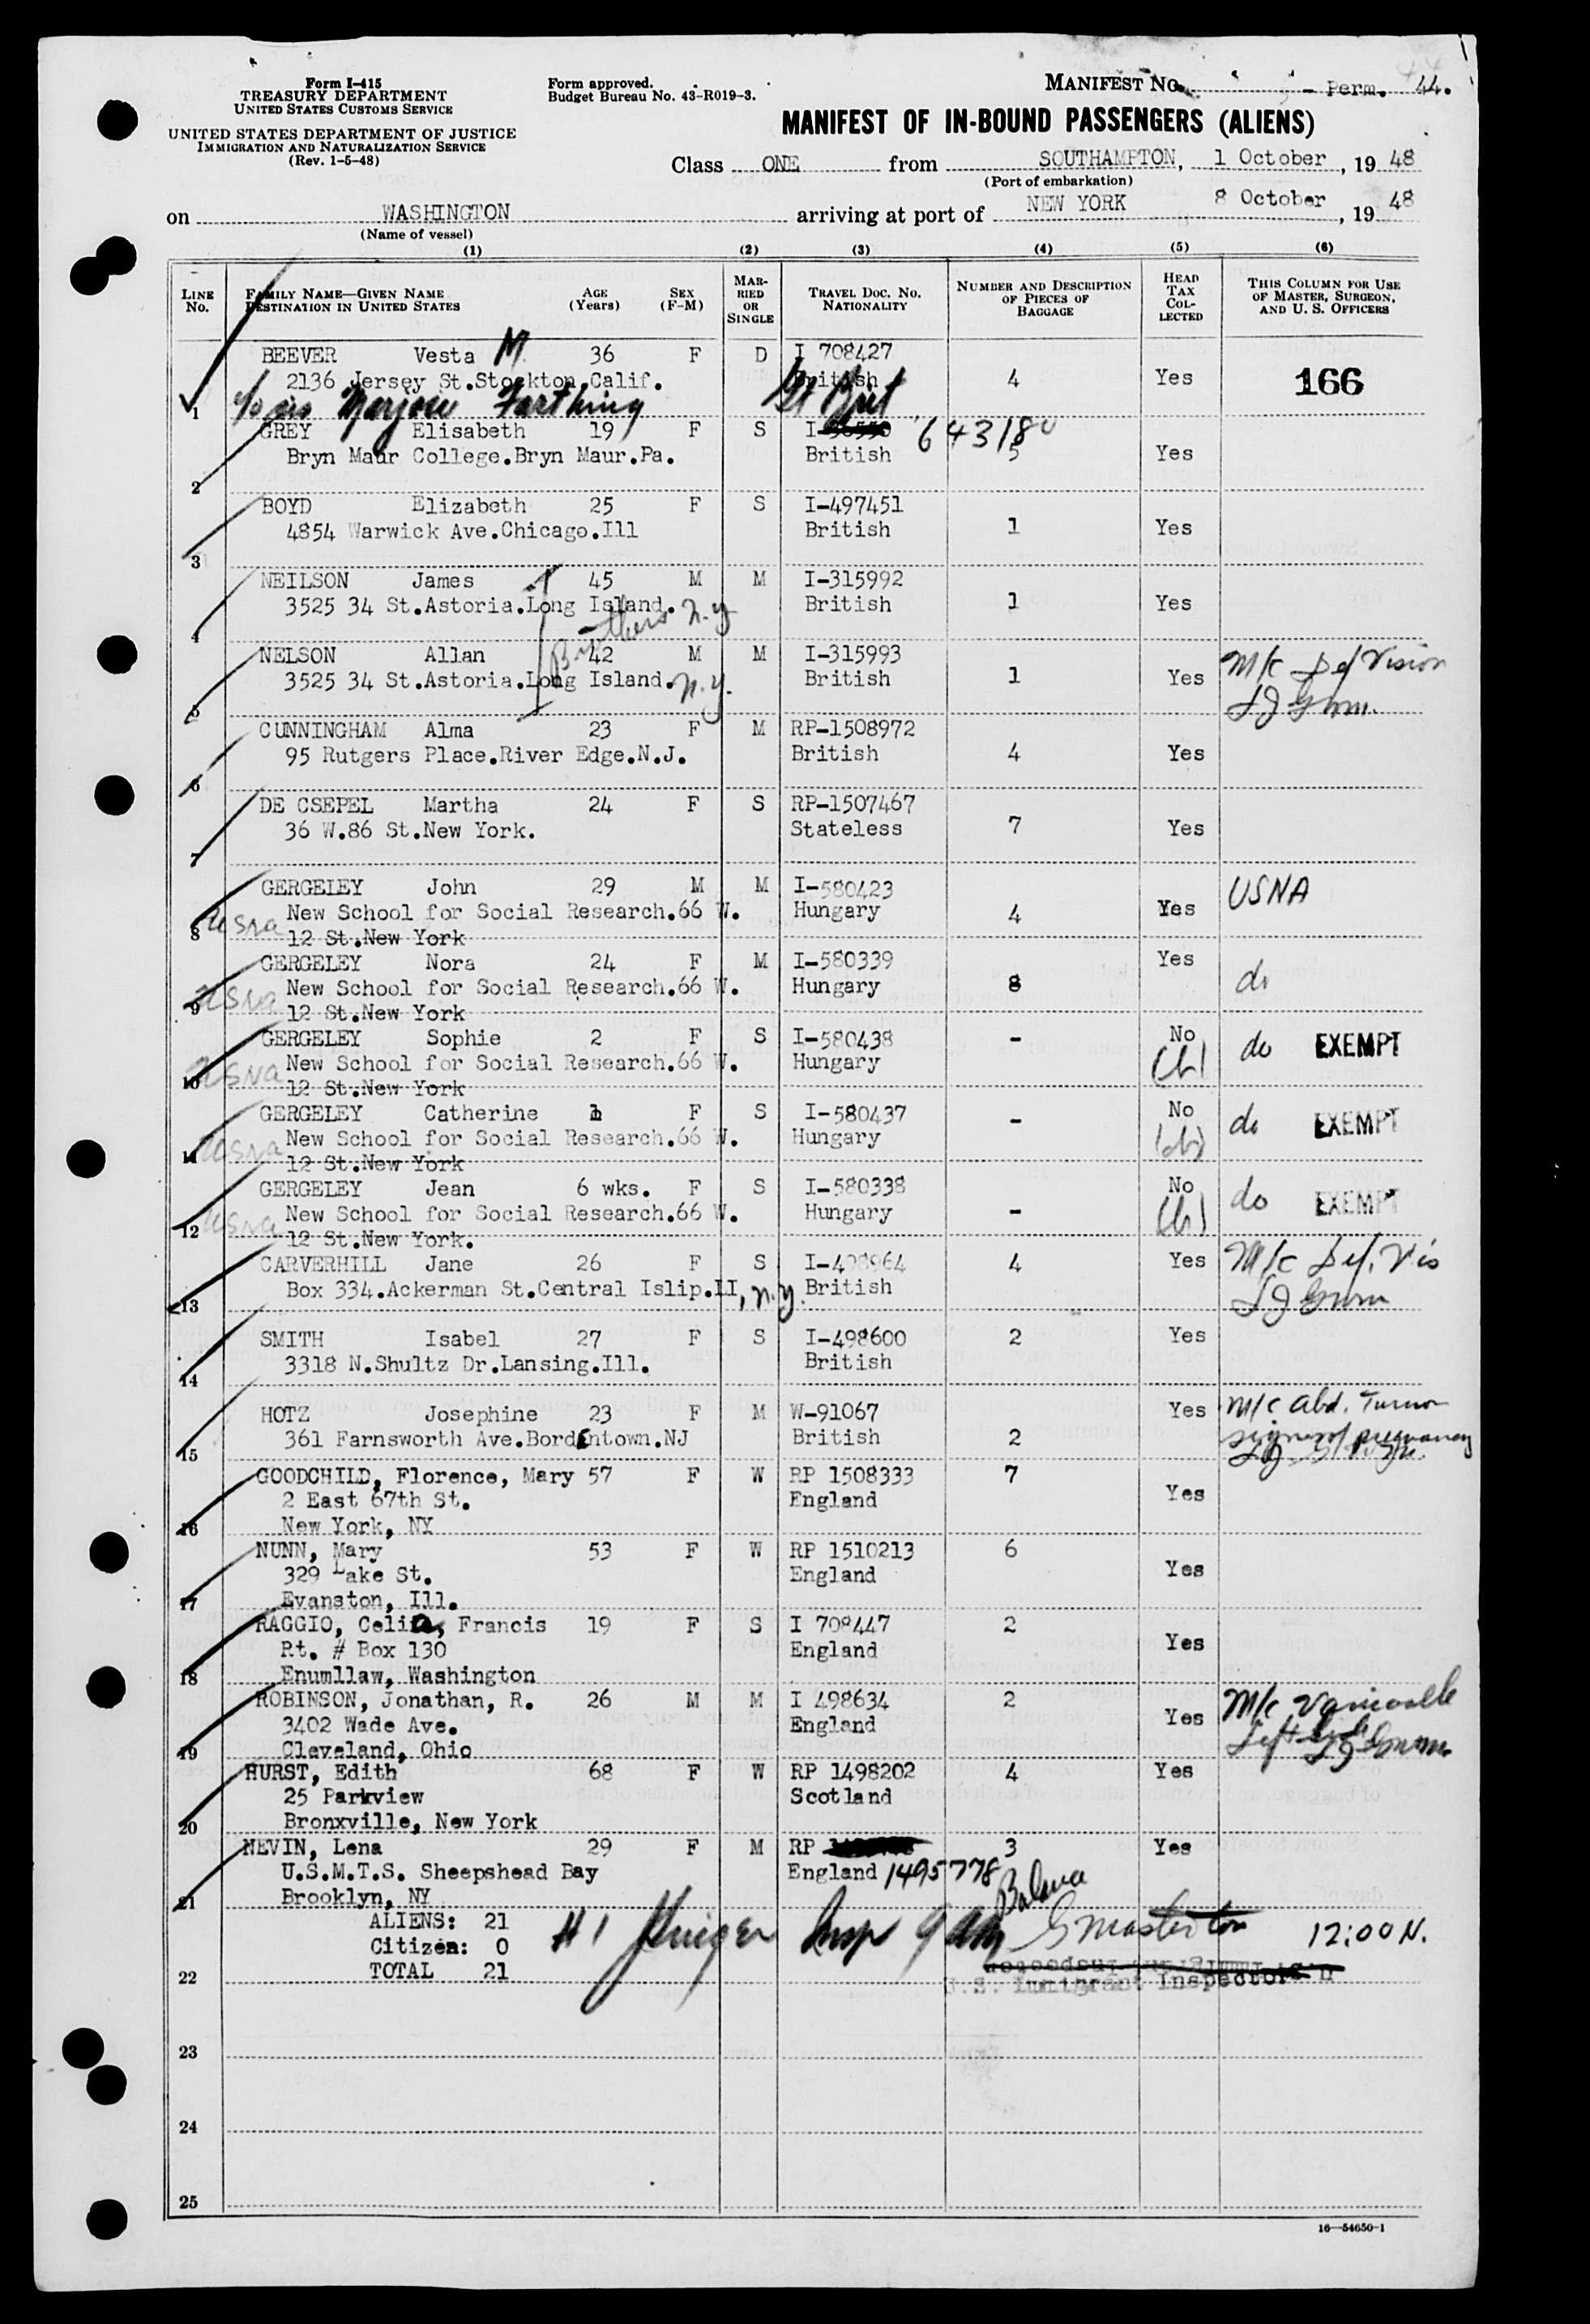 Form I-415
TREASURY DEPARTMENT
UNITED STATES CUSTOMS SERVICE
UNITED STATES DEPARTMENT OF JUSTICE
IMMIGRATION AND NATURALIZATION SERVICE
(Rev. 1-5-48)
Form approved.
Budget Bureau No. 43-R019-3.
MANIFEST No. - Perm. 44.
MANIFEST OF IN-BOUND PASSENGERS (ALIENS)
Class ONE from SOUTHAMPTON, 1 October, 1948
(Port of embarkation)
on WASHINGTON arriving at port of NEW YORK 8 October, 1948
(Name of vessel)
(1) (2) (3) (4) (5) (6)
LINE No. FAMILY NAME—GIVEN NAME DESTINATION IN UNITED STATES AGE (Years) SEX (F-M) MARRIED OR SINGLE TRAVEL DOC. No. NATIONALITY NUMBER AND DESCRIPTION OF PIECES OF BAGGAGE HEAD TAX COLLECTED THIS COLUMN FOR USE OF MASTER, SURGEON, AND U. S. OFFICERS
BEEVER Vesta M 36 F D I 708427
2136 Jersey St.Stockton.Calif. British 4 Yes 166
1 c/o sis Marjorie Farthing Gt Brit
GREY Elisabeth 19 F S I- 643180
Bryn Maur College.Bryn Maur.Pa. British 5 Yes
2
BOYD Elizabeth 25 F S I-497451
4854 Warwick Ave.Chicago.Ill British 1 Yes
3
NEILSON James 45 M M I-315992
3525 34 St.Astoria.Long Island. N.Y British 1 Yes
4 Brothers
NELSON Allan 42 M M I-315993
3525 34 St.Astoria.Long Island. N.Y. British 1 Yes M/c Def Vision
5
CUNNINGHAM Alma 23 F M RP-1508972
95 Rutgers Place.River Edge.N.J. British 4 Yes
6
DE CSEPEL Martha 24 F S RP-1507467
36 W.86 St.New York. Stateless 7 Yes
7
GERGELEY John 29 M M I-580423
New School for Social Research.66 W. Hungary 4 Yes USNA
8 usna 12 St.New York
GERGELEY Nora 24 F M I-580339 Yes
New School for Social Research.66 W. Hungary 8 do
9 usna 12 St.New York
GERGELEY Sophie 2 F S I-580438 - No
New School for Social Research.66 W. Hungary (b) do EXEMPT
10 usna 12 St.New York
GERGELEY Catherine 1 F S I-580437 - No
New School for Social Research.66 W. Hungary (b) do EXEMPT
11 usna 12 St.New York
GERGELEY Jean 6 wks. F S I-580338 No
New School for Social Research.66 W. Hungary - (b) do EXEMPT
12 usna 12 St.New York.
CARVERHILL Jane 26 F S I-498964 4 Yes M/c Def. Vis
Box 334.Ackerman St.Central Islip.LI, N.Y. British
13
SMITH Isabel 27 F S I-498600 2 Yes
3318 N.Shultz Dr.Lansing.Ill. British
14
HOTZ Josephine 23 F M W-91067 Yes M/c Abd. Tumor
361 Farnsworth Ave.Bordentown.NJ British 2 signs of pregnancy
15
GOODCHILD, Florence, Mary 57 F W RP 1508333 7
2 East 67th St. England Yes
16 New York, NY
NUNN, Mary 53 F W RP 1510213 6
329 Lake St. England Yes
17 Evanston, Ill.
RAGGIO, Celia, Francis 19 F S I 708447 2
Rt. # Box 130 England Yes
18 Enumllaw, Washington
ROBINSON, Jonathan, R. 26 M M I 498634 2
3402 Wade Ave. England Yes M/c Varicocele
19 Cleveland, Ohio Left
HURST, Edith 68 F W RP 1498202 4 Yes
25 Parkview Scotland
20 Bronxville, New York
NEVIN, Lena 29 F M RP 3 Yes
U.S.M.T.S. Sheepshead Bay England 1495778
21 Brooklyn, NY
ALIENS: 21
Citizen: 0
22 TOTAL 21
#1 Kruger Insp 9 am Balance G Masterton 12:00 N.
U.S. Immigrant Inspectors
23
24
25
16—54650-1